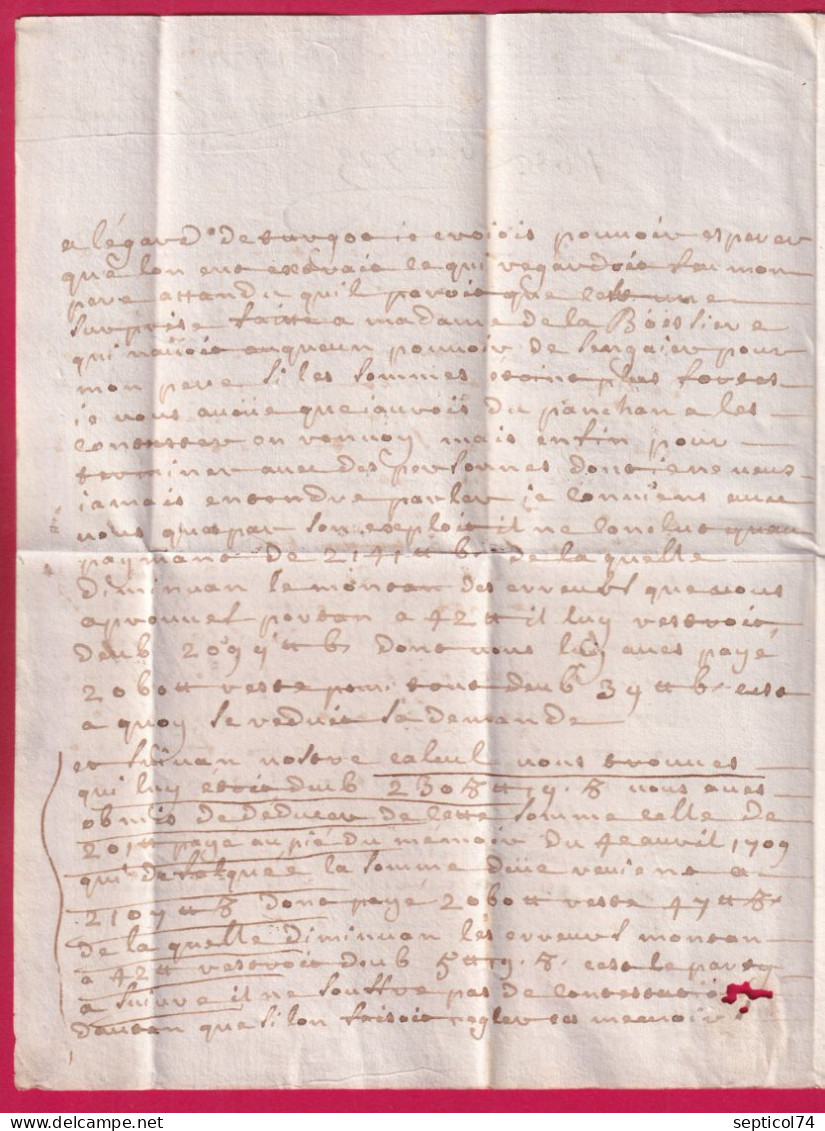 a légard de turgot ie croiois pouuoir esperer
que lon eut extrait ce qui regardoit feu mon
pere attandu qu'il paroit que cest une
surprise faitte a madame de la Boissiere
qui n'auoit auqueun pouuoir de sengaier pour
mon pere si les sommes étoint plus fortes
ie vous auoüe que iaurois du panchan a les
contester en renuoy mais enfin pour
terminer auec des personnes dont ie ne veus
iamais entendre parler ie conuiens auec
vous que par son exploit il ne conclut quau
paymant de 2141tt 6s de la quelle
diminuan le montan des erreurs que vous
aprouues portan a 42tt il luy resteroit
deub 2099tt 6s dont vous luy aues payé
2060tt reste pour tout deub 39tt 6s cest
a quoy se reduit sa demande
et suiuan nostre calcul vous trouues
qui luy étoit deub 2308tt 9. 8 vous aues
obmis de deduire de cette somme celle de
201tt payé au pié du mémoire du 4e auril 1709
la somme deüe reuient a
2107tt 8 dont payé 2060tt reste 47tt 8s
de la quelle diminuan les erreurs montan
a 42tt resteroit deub 5tt 9. 8. cest le party
a suiure il ne souffre pas de contestatio
dautan que si lon faisoit regler ses memoire
septicol74